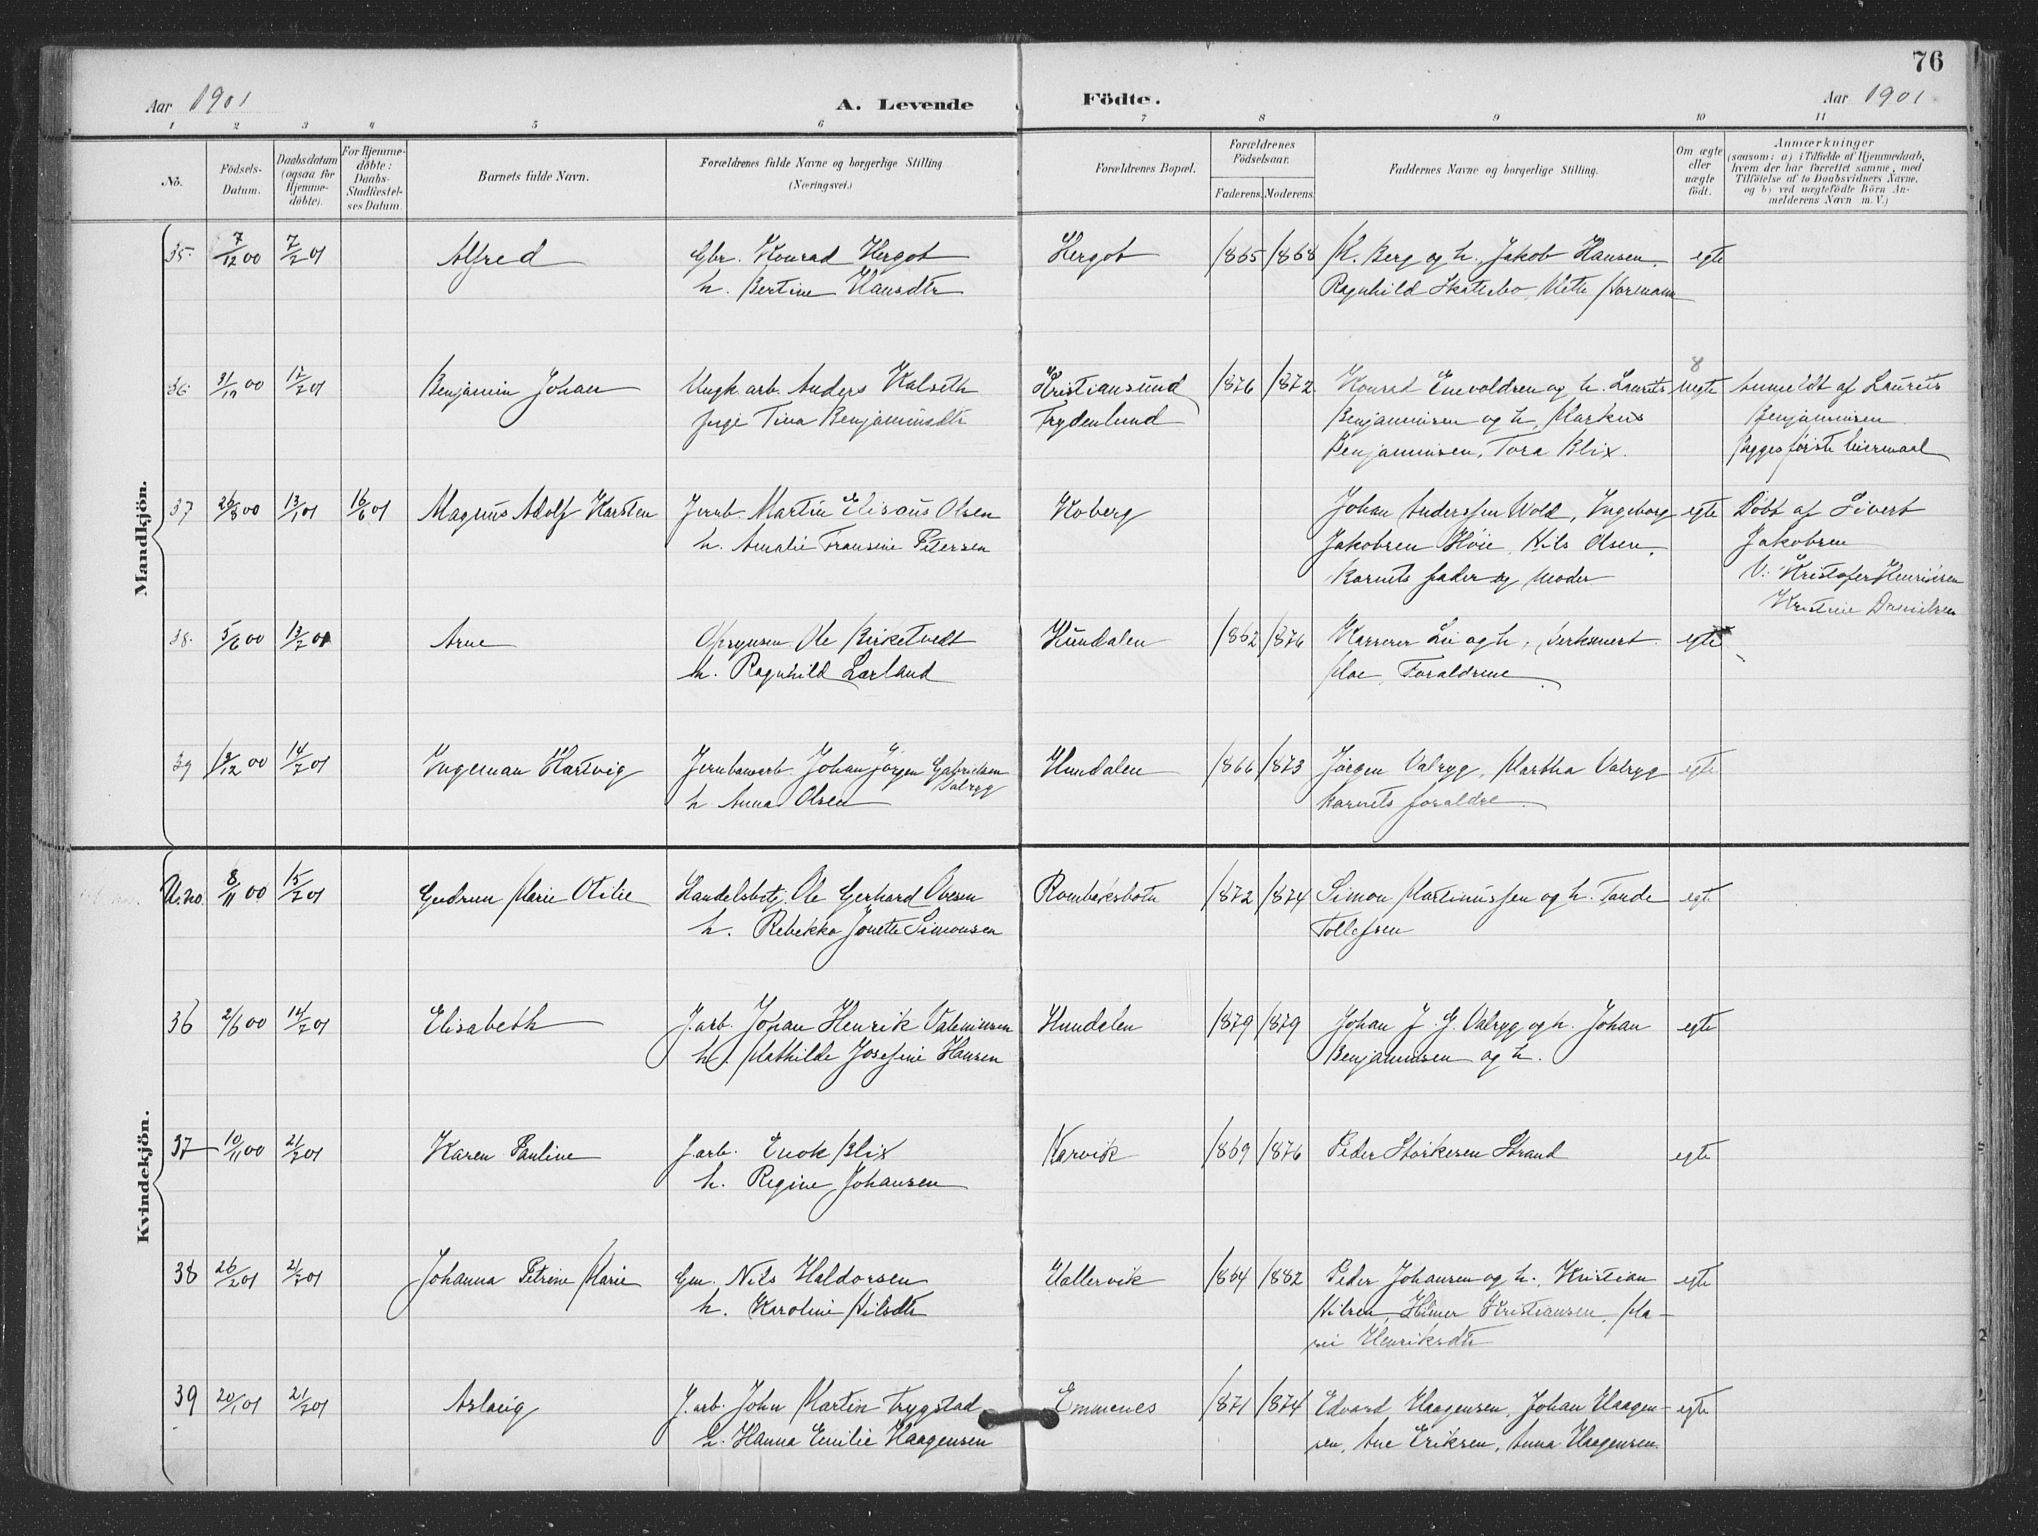 76
Aar 1901
A. Levende Födte.
Aar 1901
1 2 3 4 5 6 7 8 9 10 11
No.
Födsels-
Datum.
Daabsdatum
(ogsaa for
Hjemme-
döbte).
For Hjemme-
döbte:
Daabs-
Stadfæstel-
ses Datum.
Barnets fulde Navn.
Forældrenes fulde Navne og borgerlige Stilling
(Næringsvei.)
Forældrenes Bopæl.
Forældrenes
Födselsaar.
Faderens. Moderens.
Faddernes Navne og borgerlige Stilling.
Om ægte
eller
uægte
födt.
Anmærkninger
(saasom: a) i Tilfælde af Hjemmedaab,
hvem der har forrettet samme, med
Tilföielse af to Daabsvidners Navne,
og b) ved uægtefödte Börn An-
melderens Navn m. V.)
Mandkjön.
35 7/12 00 7/2 01 Alfred Gbr. Konrad Hergot Hergot 1865 1868 K. Berg og h. Jakob Hansen, egte
h. Bertine Hansdtr Ragnhild Skatebo, Meth Normann
36 31/12 00 17/2 01 Benjamin Johan Ungk. arb. Anders Kalseth Kristiansund 1876 1872 Konrad Enevoldsen og h. Laurits uegte Anmeldt af Laurits
pige Tina Benjaminsdtr Frydenlund Benjaminsen og h, Markus Benjaminsen
Benjaminsen, Tora Blix. Begges første leiermaal
37 26/8 00 13/1 01 16/6 01 Magnus Adolf Karsten Jernb. Martin Elisæus Olsen Koberg Johan Anderssen Wold, Ingeborg egte Døbt af Sivert
h. Amalie Fransine Petersen Jakobsen Høie, Nils Olsen, Jakobsen
barnets fader og moder V: Kristofer Henriksen
Kristine Danielsen
38. 5/6 00 13/2 01 Arne Opsynsm. Ole Birketvedt Hundalen 1862 1876 Lie og h, egte
h. Ragnhild Moe, Forældrene
39 12/12 00 14/2 01 Ingeman Hartvig Jernbanearb. Johan Jörgen Gabrielsen Hundalen 1866 1873 Jørgen Valryg, Martha Valryg egte
Valryg
h. Anna Olsen barnets forældre
Kvindekjön.
U.no. 8/11 00 15/2 01 Gudrun Marie Otilie Handelsbetj. Ole Gerhard Olsen Rombaksbotn 1872 1874 Simon Martinussen og h. Tande egte
h. Rebekka Jonette Simonsen Tollefsen
36 2/6 00 14/2 01 Elisabeth J. arb. Johan Henrik Hundalen 1879 1879 Johan J. G. Valryg og h. Johan egte
h. Mathilde Josefine Hansen Benjaminsen og h.
37 10/11 00 21/2 01 Karen Pauline J. arb. Enok Blix Narvik 1869 1876 Peder Storkersen Strand egte
h. Regine Johansen
38 26/2 01 21/2 01 Johanna Petrine Marie Gm. Nils Haldorsen Hallervik 1864 1882 Peder Johansen og h. Kristian egte
h. Karoline Nilsdtr Nilsen, Hilmer Kristiansen, Ma-
rie Henriksdtr
39 20/1 01 21/2 01 Aslaug J. arb. John Martin Trygstad Emmenes 1871 1874 Edvard Haagensen, Johan Haagen- egte
h. Hanna Emilie Haagensen sen, Ane Eriksen, Anna Haagensen